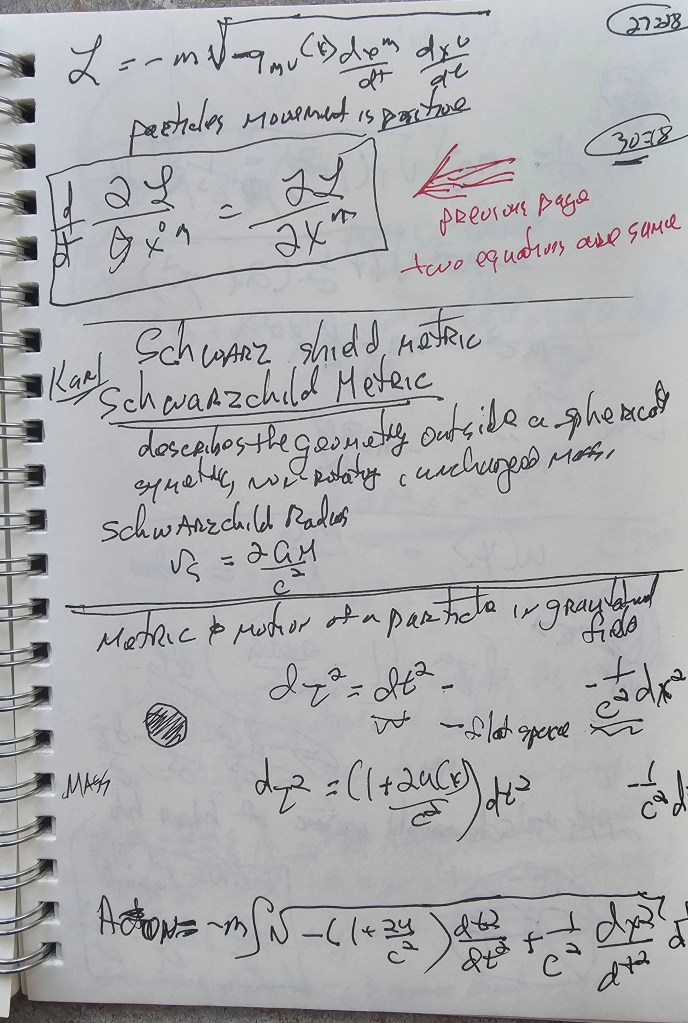 27:28
L = -m √-g_mν(x) dx^m/dt dx^ν/dt
particles movement is positive
30:28
d/dt ∂L/∂ẋ^m = ∂L/∂x^m
previous page
two equations are same
Schwarz shield metric
Karl
Schwarzchild Metric
describes the geometry outside a spherical
symetric, non-rotating, uncharged mass.
Schwarzchild Radius
r_s = 2GM/c^2
Metric & motion of a particle in gravitational
field
dτ^2 = dt^2 - - 1/c^2 dx^2
- flat space
MASS
dτ^2 = (1 + 2u(x)/c^2) dt^2 - 1/c^2 d
Action = -m ∫√-(1 + 2u/c^2) dt^2/dt^2 + 1/c^2 dx^2/dt^2